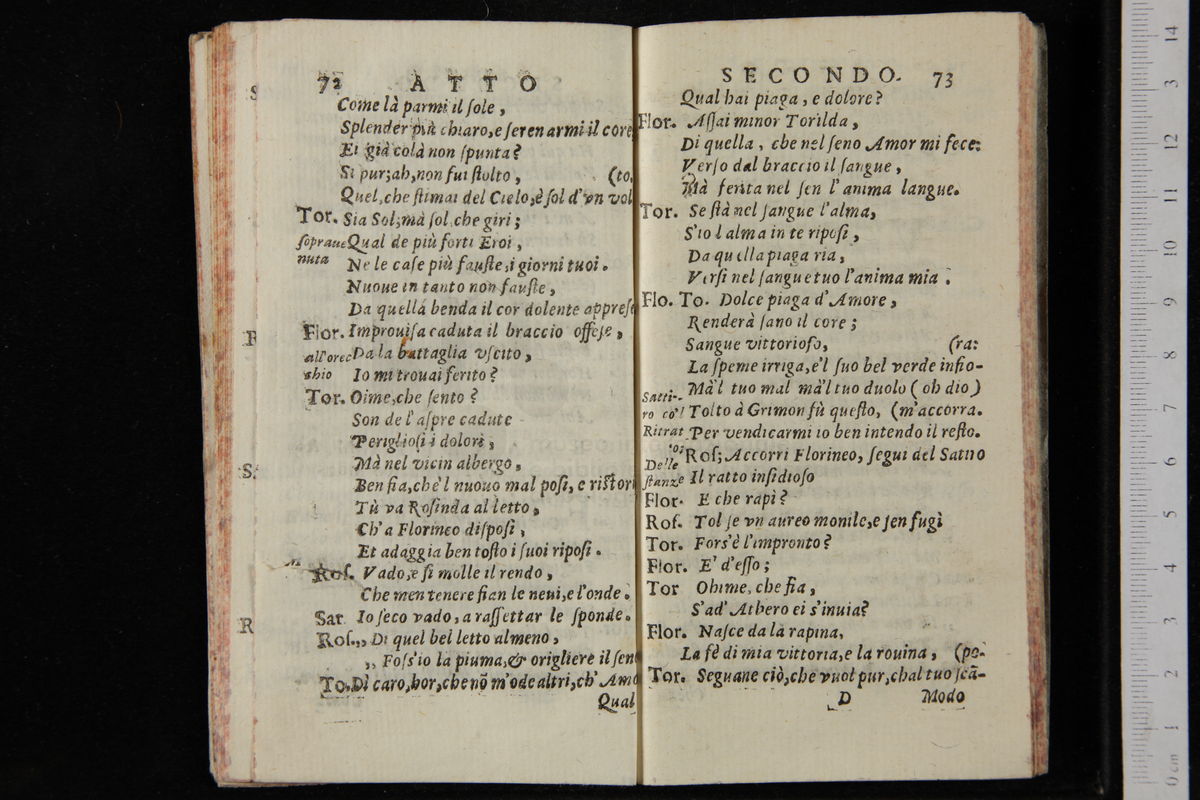 72 ATTO
Come là parmi il sole,
Splender più chiaro, e serenarmi il core
Ei già colà non spunta?
Si pur; ah, non fui stolto, (to,
Quel, che stimai del Cielo, è sol d'vn vol
Tor. Sia Sol; mà sol, che giri;
soprauenuta Qual de più forti Eroi,
Ne le case più fauste, i giorni tuoi.
Nuoue in tanto non fauste,
Da quella benda il cor dolente apprese
Flor. Improuisa caduta il braccio offese,
all'orecchio Da la battaglia vscito,
Io mi trouai ferito?
Tor. Oime, che sento?
Son de l'aspre cadute
Perigliosi i dolori,
Mà nel vicin albergo,
Ben fia, che'l nuouo mal posi, e ristori
Tù va Rosinda al letto,
Ch'a Florineo disposi,
Et adaggia ben tosto i suoi riposi.
Ros. Vado, e si molle il rendo,
Che men tenere fian le neui, e l'onde.
Sar. Io seco vado, a rassettar le sponde.
Ros. ,, Di quel bel letto almeno,
,, Foss'io la piuma, & origliere il sen
To. Dì caro, hor, che nõ m'ode altri, ch'Amo
Qual
SECONDO. 73
Qual hai piaga, e dolore?
Flor. Assai minor Torilda,
Di quella, che nel seno Amor mi fece:
Verso dal braccio il sangue,
Mà ferita nel sen l'anima langue.
Tor. Se stà nel sangue l'alma,
S'io l alma in te riposi,
Da quella piaga ria,
Versi nel sangue tuo l'anima mia.
Flo. To. Dolce piaga d'Amore,
Renderà sano il core;
Sangue vittorioso, (ra:
La speme irriga, e'l suo bel verde infio-
Mà'l tuo mal mà'l tuo duolo (oh dio)
Satiro co'l Ritrato: Tolto à Grimon fù questo, (m'accorra.
Per vendicarmi io ben intendo il resto.
Delle stanze Ros; Accorri Florineo, segui del Satiro
Il ratto insidioso
Flor. E che rapì?
Ros. Tolse vn aureo monile, e sen fugì
Tor. Fors'è l'impronto?
Flor. E' d'esso;
Tor Ohime, che fia,
S'ad' Athero ei s'inuia?
Flor. Nasce da la rapina,
La fè di mia vittoria, e la rouina, (po.
Tor. Seguane ciò, che vuol pur, ch'al tuo scã-
D Modo